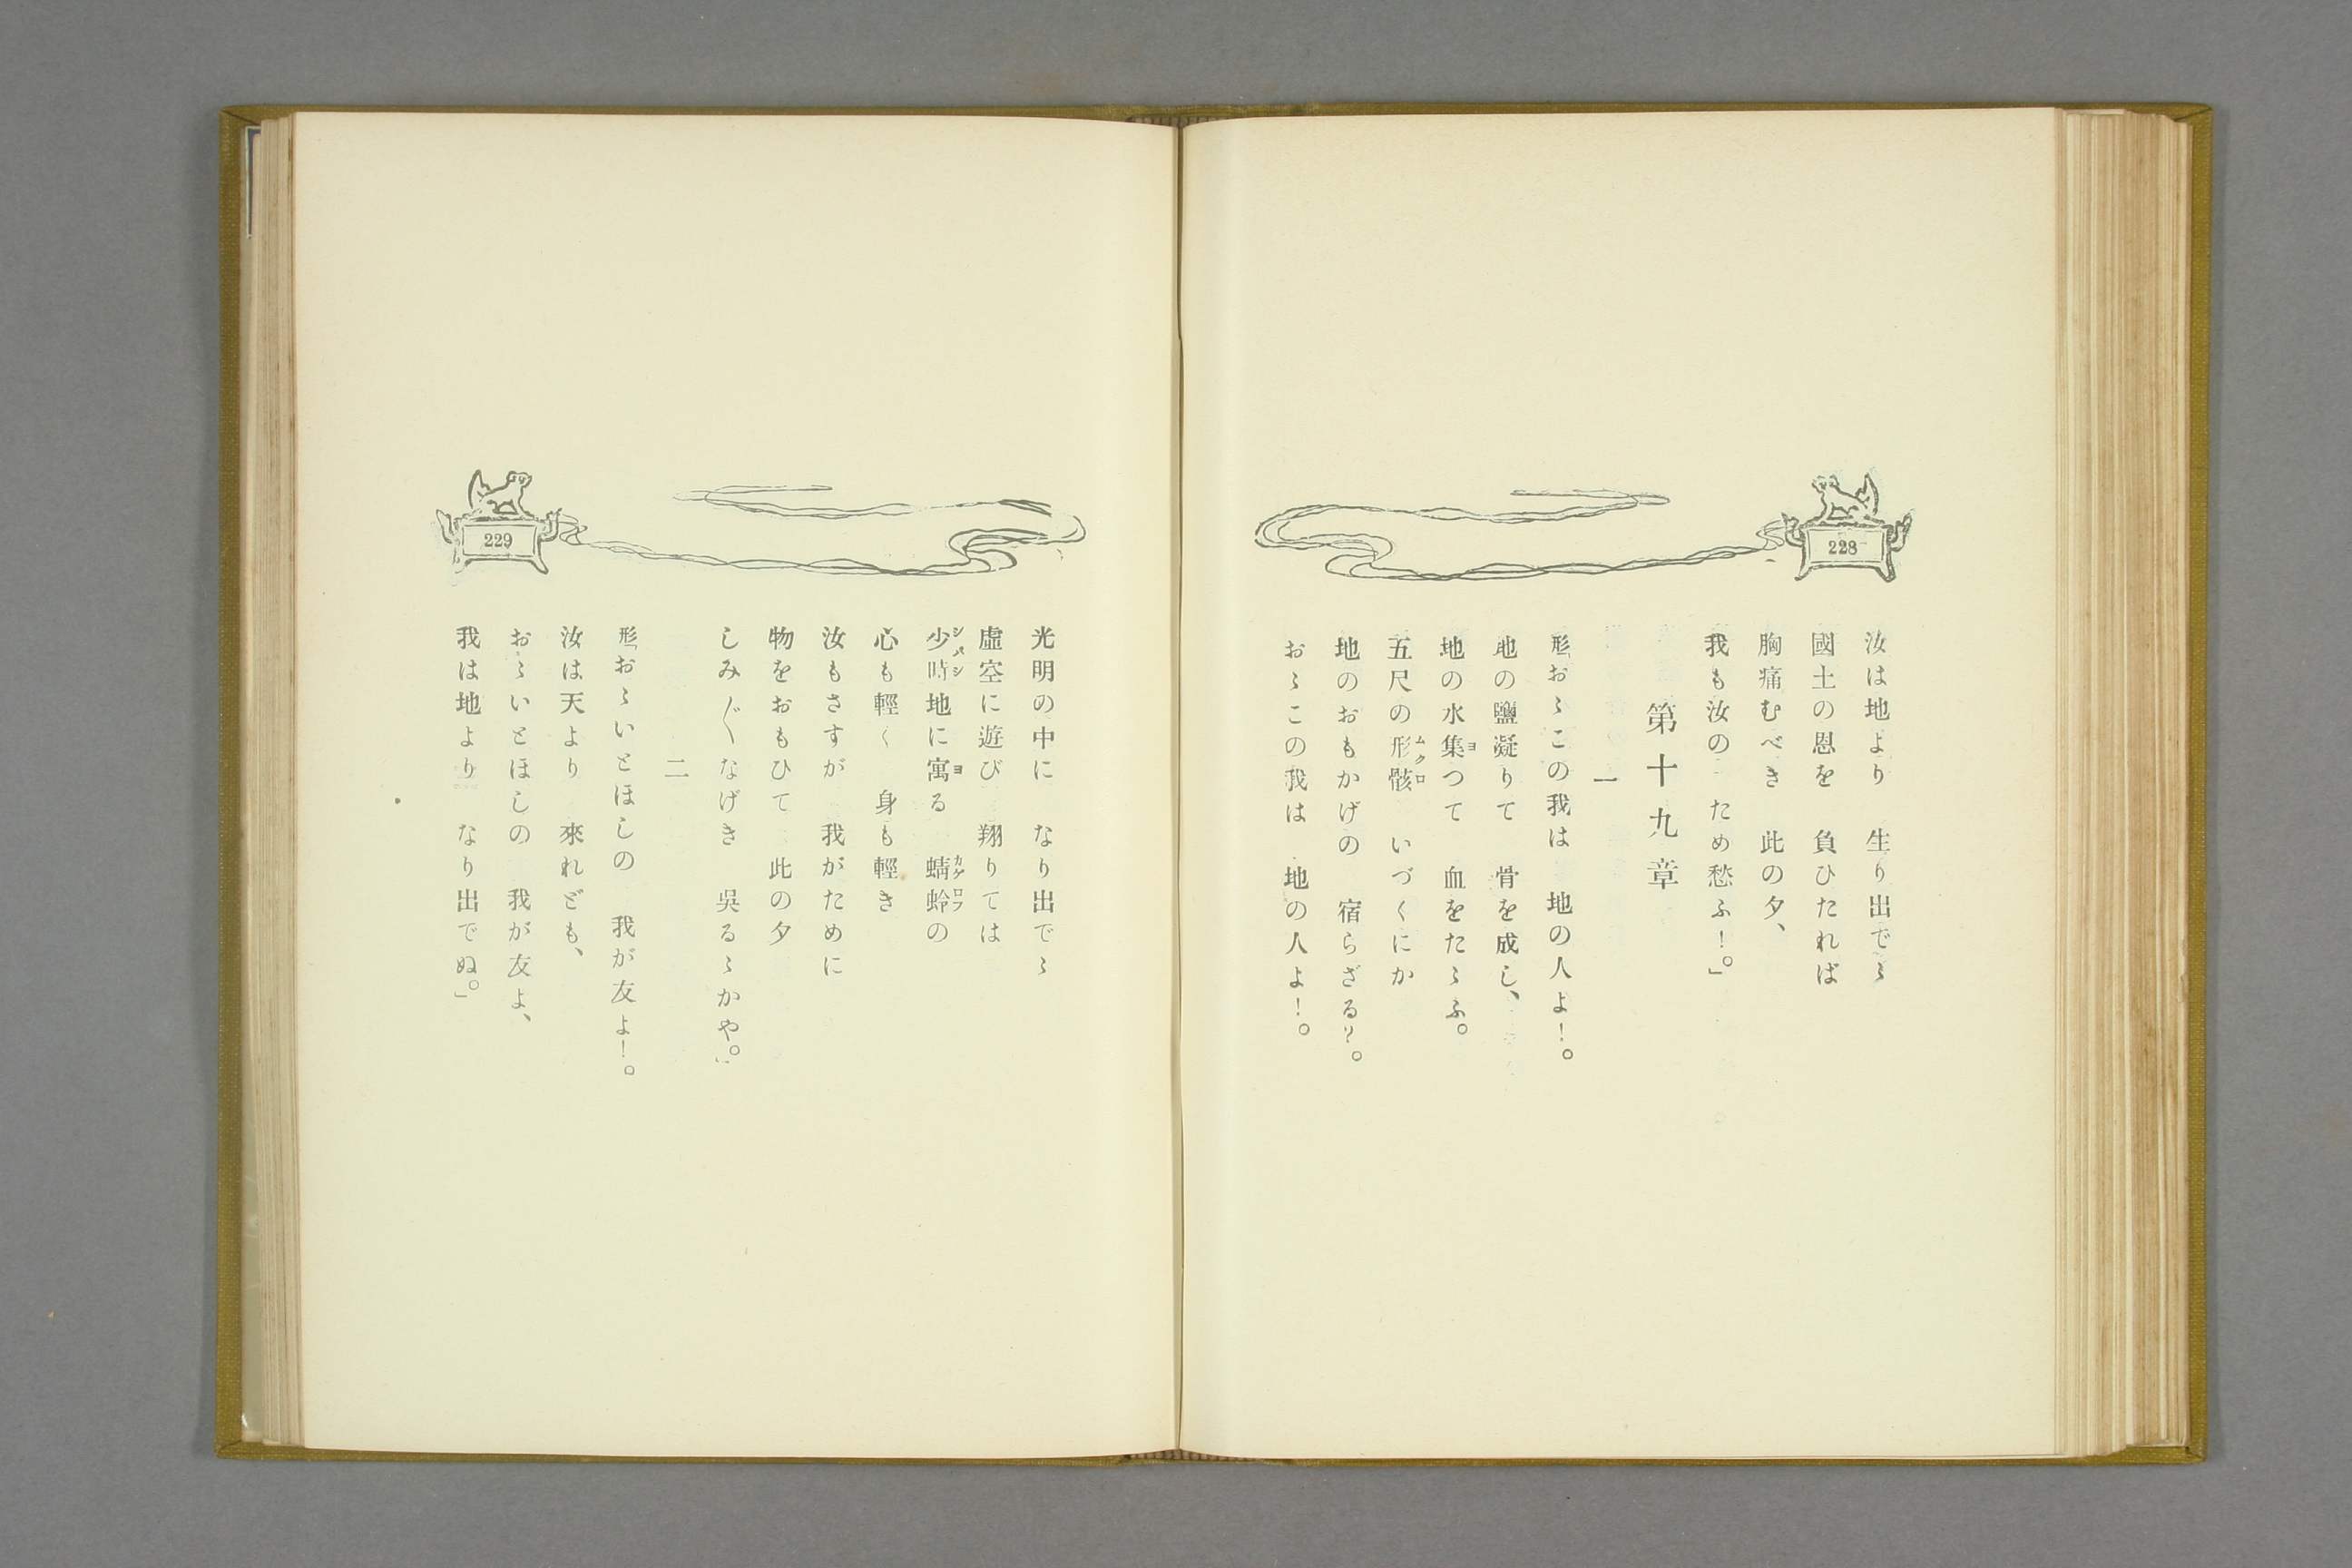 228
汝は地より　生り出でゝ
國土の恩を　負ひたれば
胸痛むべき　此の夕、
我も汝の　ため愁ふ！。」
第十九章
一
形「おゝこの我は　地の人よ！。
地の鹽凝りて　骨を成し、
地の水集つて　血をたゝふ。
五尺の形骸　いづくにか
地のおもかげの　宿らざる？。
おゝこの我は　地の人よ！。
229
光明の中に　なり出でゝ
虛空に遊び　翔りては
少時地に寓る　蜻蛉の
心も輕く　身も輕き
汝もさすが　我がために
物をおもひて　此の夕
しみ／″＼なげき　吳るゝかや。」
二
形「おゝいとほしの　我が友よ！。
汝は天より　來れども、
おゝいとほしの　我が友よ、
我は地より　なり出でぬ。」